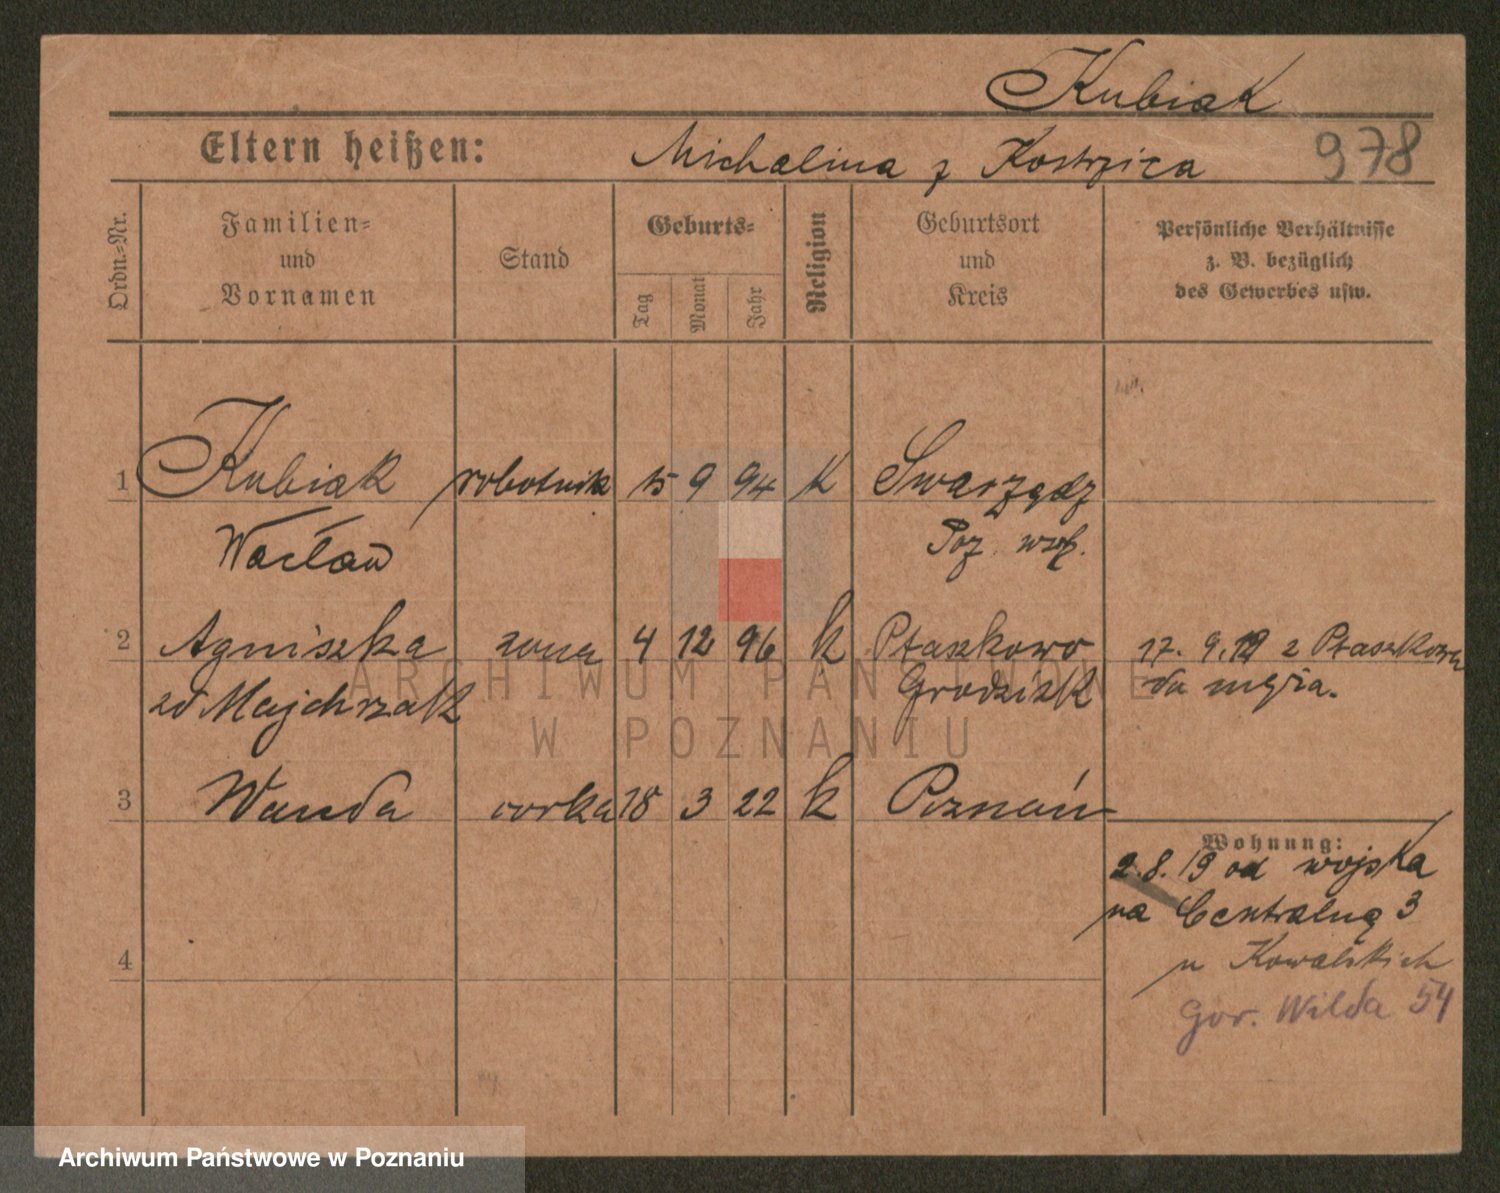 Kubiak
Eltern heißen: Michalina z Kostrzica 978
Ordn.-Nr.
Familien-
und
Vornamen
Stand
Geburts-
Tag
Monat
Jahr
Religion
Geburtsort
und
Kreis
Persönliche Verhältnisse
z. B. bezüglich
des Gewerbes usw.
1 Kubiak robotnik 15 9 94 K Swarzędz
Wacław Poz. wsch.
2 Agniszka zona 4 12 96 k Ptaszkowo 17. 9. 19 z Ptaszkowa
zd Majchrzak Grodzisk do męża.
3 Wanda corka 18 3 22 k Poznań
Wohnung:
2.8.19 od wojska
na Centralną 3
4
u Kowalskich
Gor. Wilda 54
ARCHIWUM PAŃSTWOWE
W POZNANIU
Archiwum Państwowe w Poznaniu